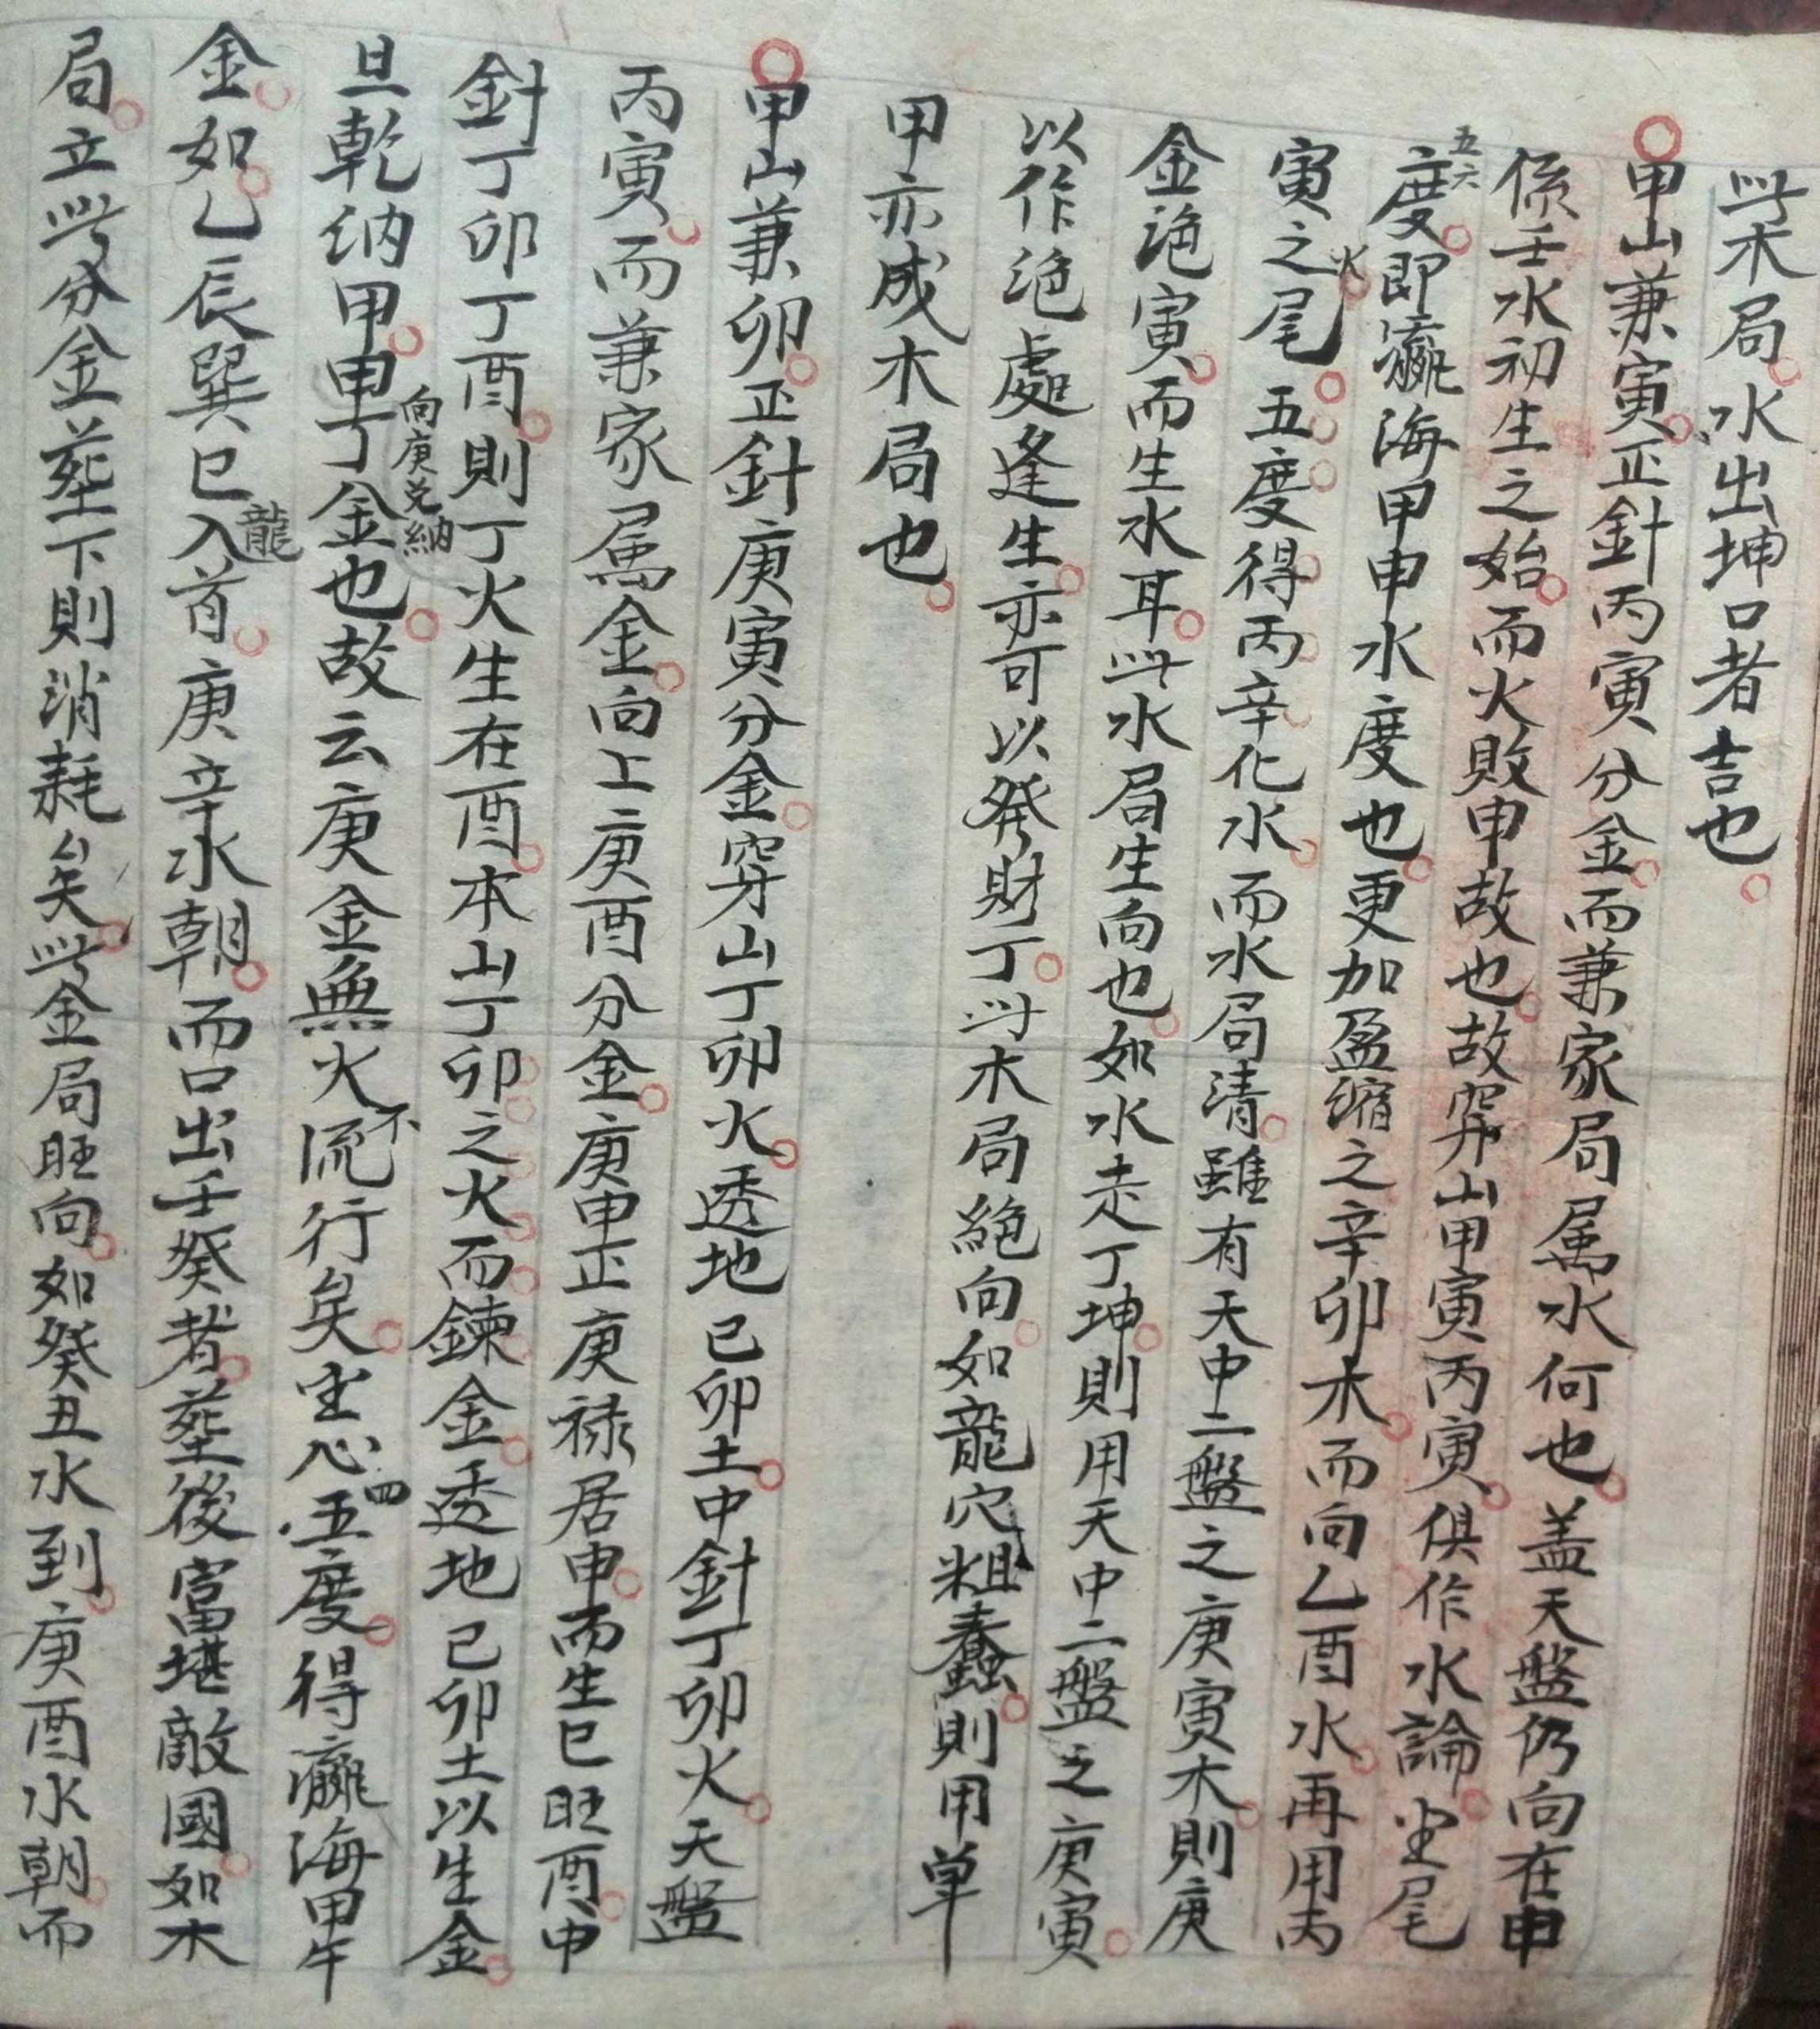 此木局水出坤口者吉也
甲山兼寅正針丙寅分金而兼家局屬水何也盖天盤仍向在申
係壬水初生之始而火敗申故也故穿山甲寅丙寅俱作水論坐尾
五六度即瀛海甲申水度也更加盈縮之辛卯木而向乙酉水再用丙
寅之火尾五度得丙辛化水而水局清雖有天中二盤之庚寅木則庚
金绝寅而生水耳此水局生向也如水走丁坤則用天中二盤之庚寅
以作绝處逢生亦可以發財丁此木局絕向如龍穴粗蠢則用单
甲亦成木局也
甲山兼卯正針庚寅分金穿山丁卯火透地己卯土中針丁卯火天盤
丙寅而兼家属金向上庚酉分金庚申正庚禄居申而生巳旺酉中
針丁卯丁酉則丁火生在酉本山丁卯之火而鍊金透地己卯土以生金
旦乾纳甲甲向庚兑納丁金也故云庚金無火不流行矣坐心四五度得瀛海甲午
金如乙辰巽巳入龍首庚辛水朝而口出壬癸者塟後富堪敵國如木
局立此分金塟下則消耗矣此金局旺向如癸丑水到庚酉水朝而